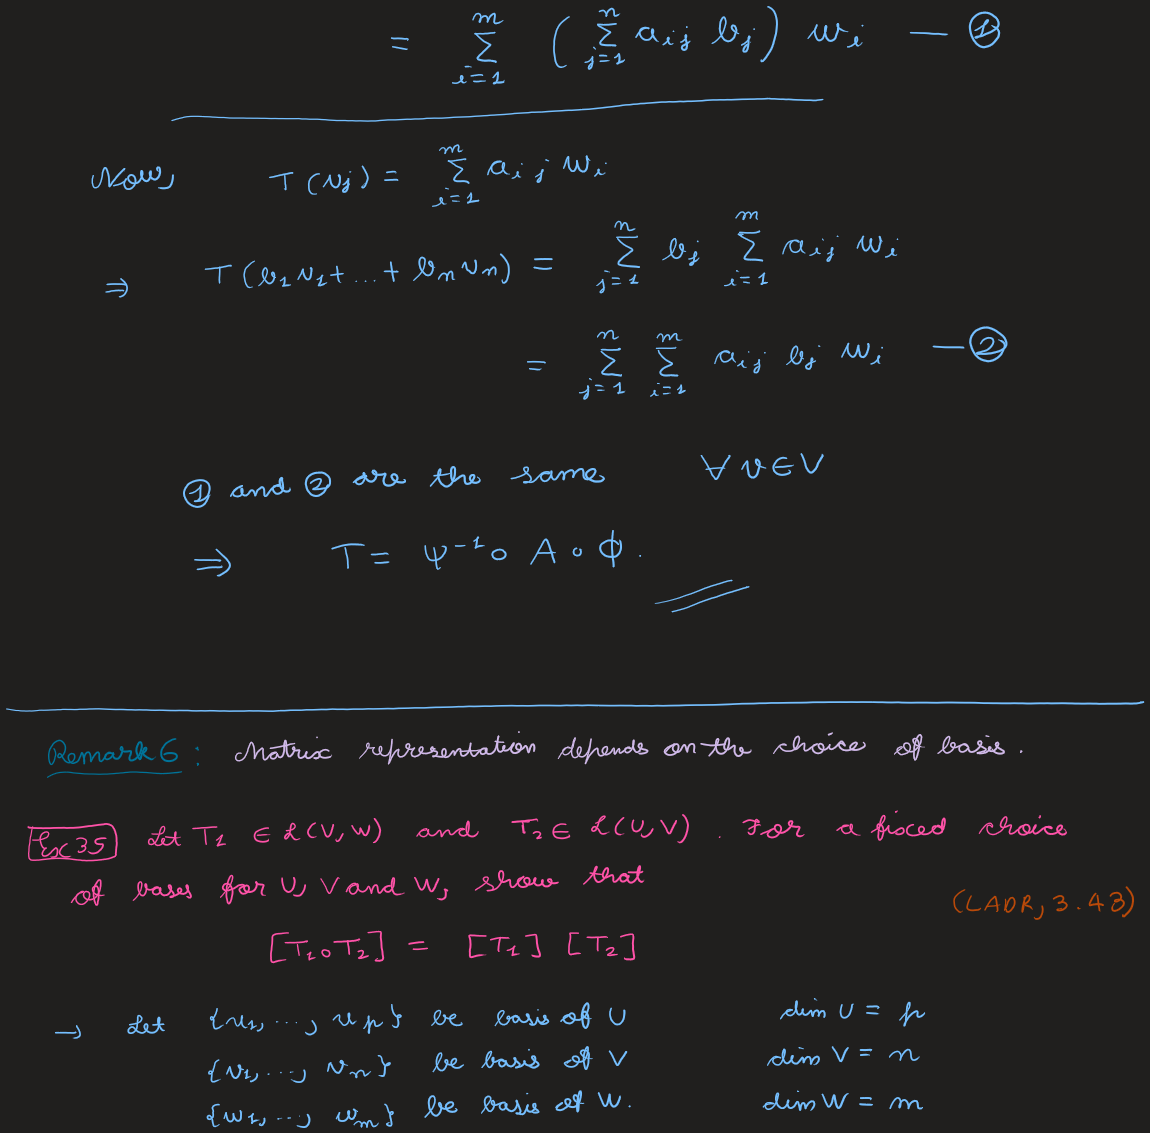 = \sum_{i=1}^{m} ( \sum_{j=1}^{n} a_{ij} b_j ) w_i — ①
Now, T(v_j) = \sum_{i=1}^{m} a_{ij} w_i
⇒ T(b_1 v_1 + ... + b_n v_n) = \sum_{j=1}^{n} b_j \sum_{i=1}^{m} a_{ij} w_i
= \sum_{j=1}^{n} \sum_{i=1}^{m} a_{ij} b_j w_i — ②
① and ② are the same ∀ v ∈ V
⇒ T = Ψ^{-1} ∘ A ∘ Φ.
Remark 6 : Matrix representation depends on the choice of basis.
Ex 35 Let T_1 ∈ L(V, W) and T_2 ∈ L(U, V). For a fixed choice
of bases for U, V and W, show that
(LADR, 3.43)
[T_1 ∘ T_2] = [T_1] [T_2]
→ Let {u_1, ..., u_p} be basis of U dim U = p
{v_1, ..., v_n} be basis of V dim V = n
{w_1, ..., w_m} be basis of W. dim W = m